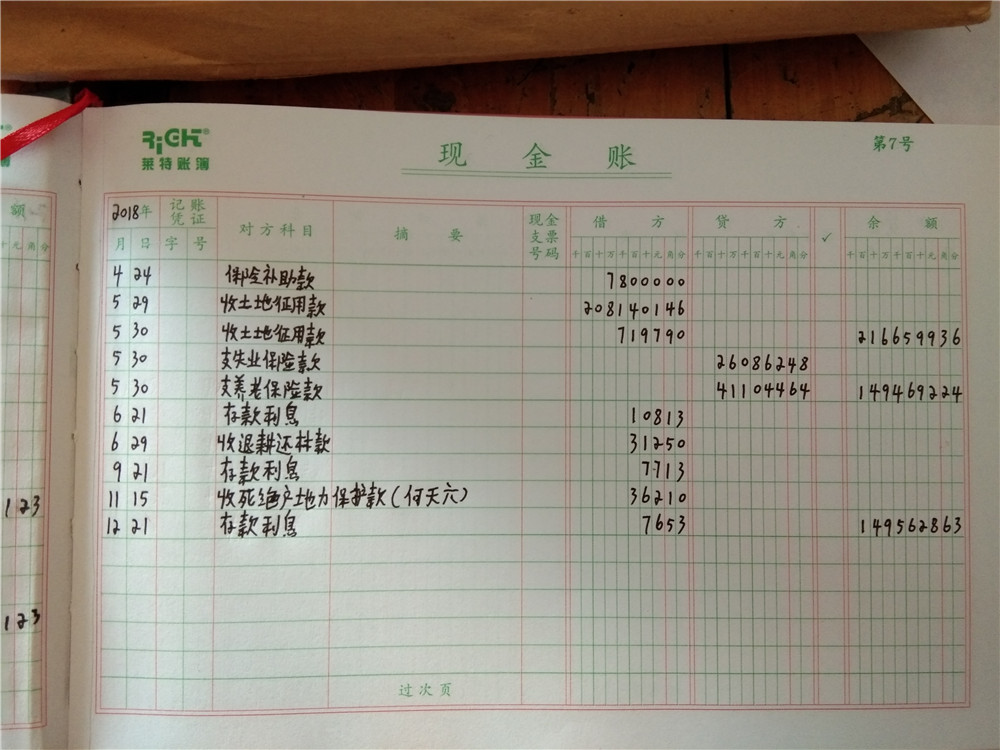 RiCH®
莱特账簿
现金账
第7号
额
十元角分
123
123
2018年 记账凭证 对方科目 摘要 现金支票号码 借方 贷方 ✓ 余额
月 日 字 号 千百十万千百十元角分 千百十万千百十元角分 千百十万千百十元角分
4 24 保险补助款 7800000
5 29 收土地征用款 208140146
5 30 收土地征用款 719790 216659936
5 30 支失业保险款 26086248
5 30 支养老保险款 41104464 149469224
6 21 存款利息 10813
6 29 收退耕还林款 31250
9 21 存款利息 7713
11 15 收死绝户地力保护款(何天六) 36210
12 21 存款利息 7653 149562863
过次页